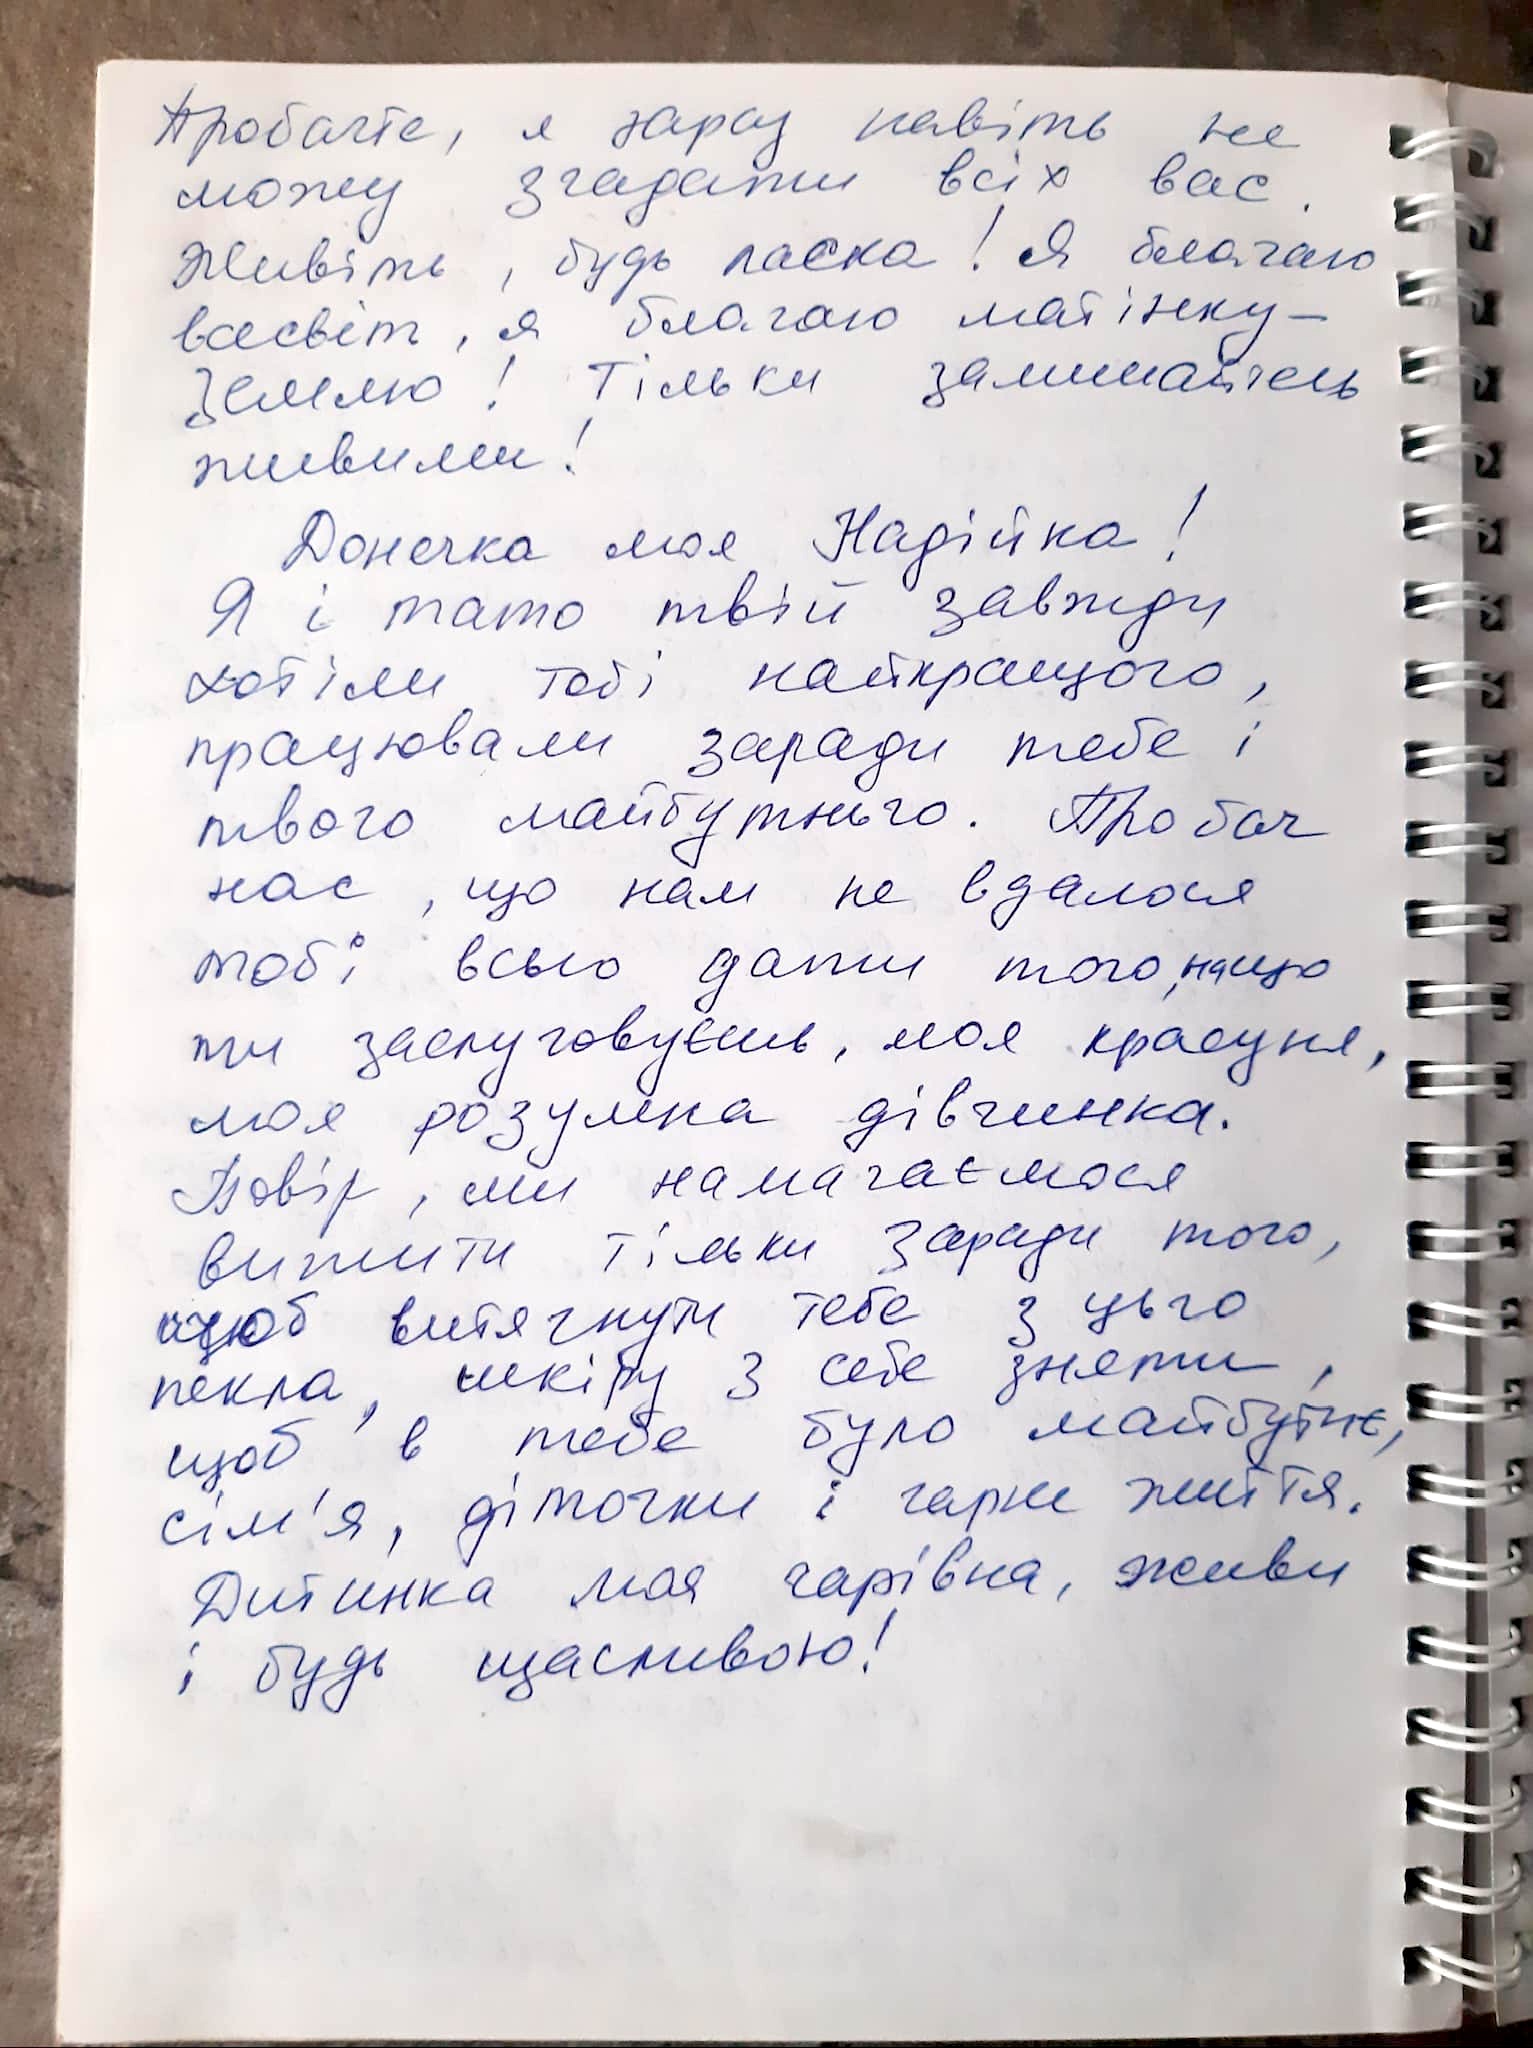 Пробачте, я зараз навіть не
можу згадати всіх вас.
Живіть, будь ласка! Я благаю
всесвіт, я благаю матінку-
Землю! Тільки залишайтесь
живими!
Донечка моя Надійка!
Я і тато твій завжди
хотіли тобі найкращого,
працювали заради тебе і
твого майбутнього. Пробач
нас, що нам не вдалося
тобі всього дати того, на що
ти заслуговуєшь, моя красуня,
моя розумна дівчинка.
Повір, ми намагаємося
вижити тільки заради того,
щоб витягнути тебе з цього
пекла, шкіру з себе зняти,
щоб в тебе було майбутнє,
сім'я, діточки і гарне життя.
Дитинка моя чарівна, живи
і будь щасливою!